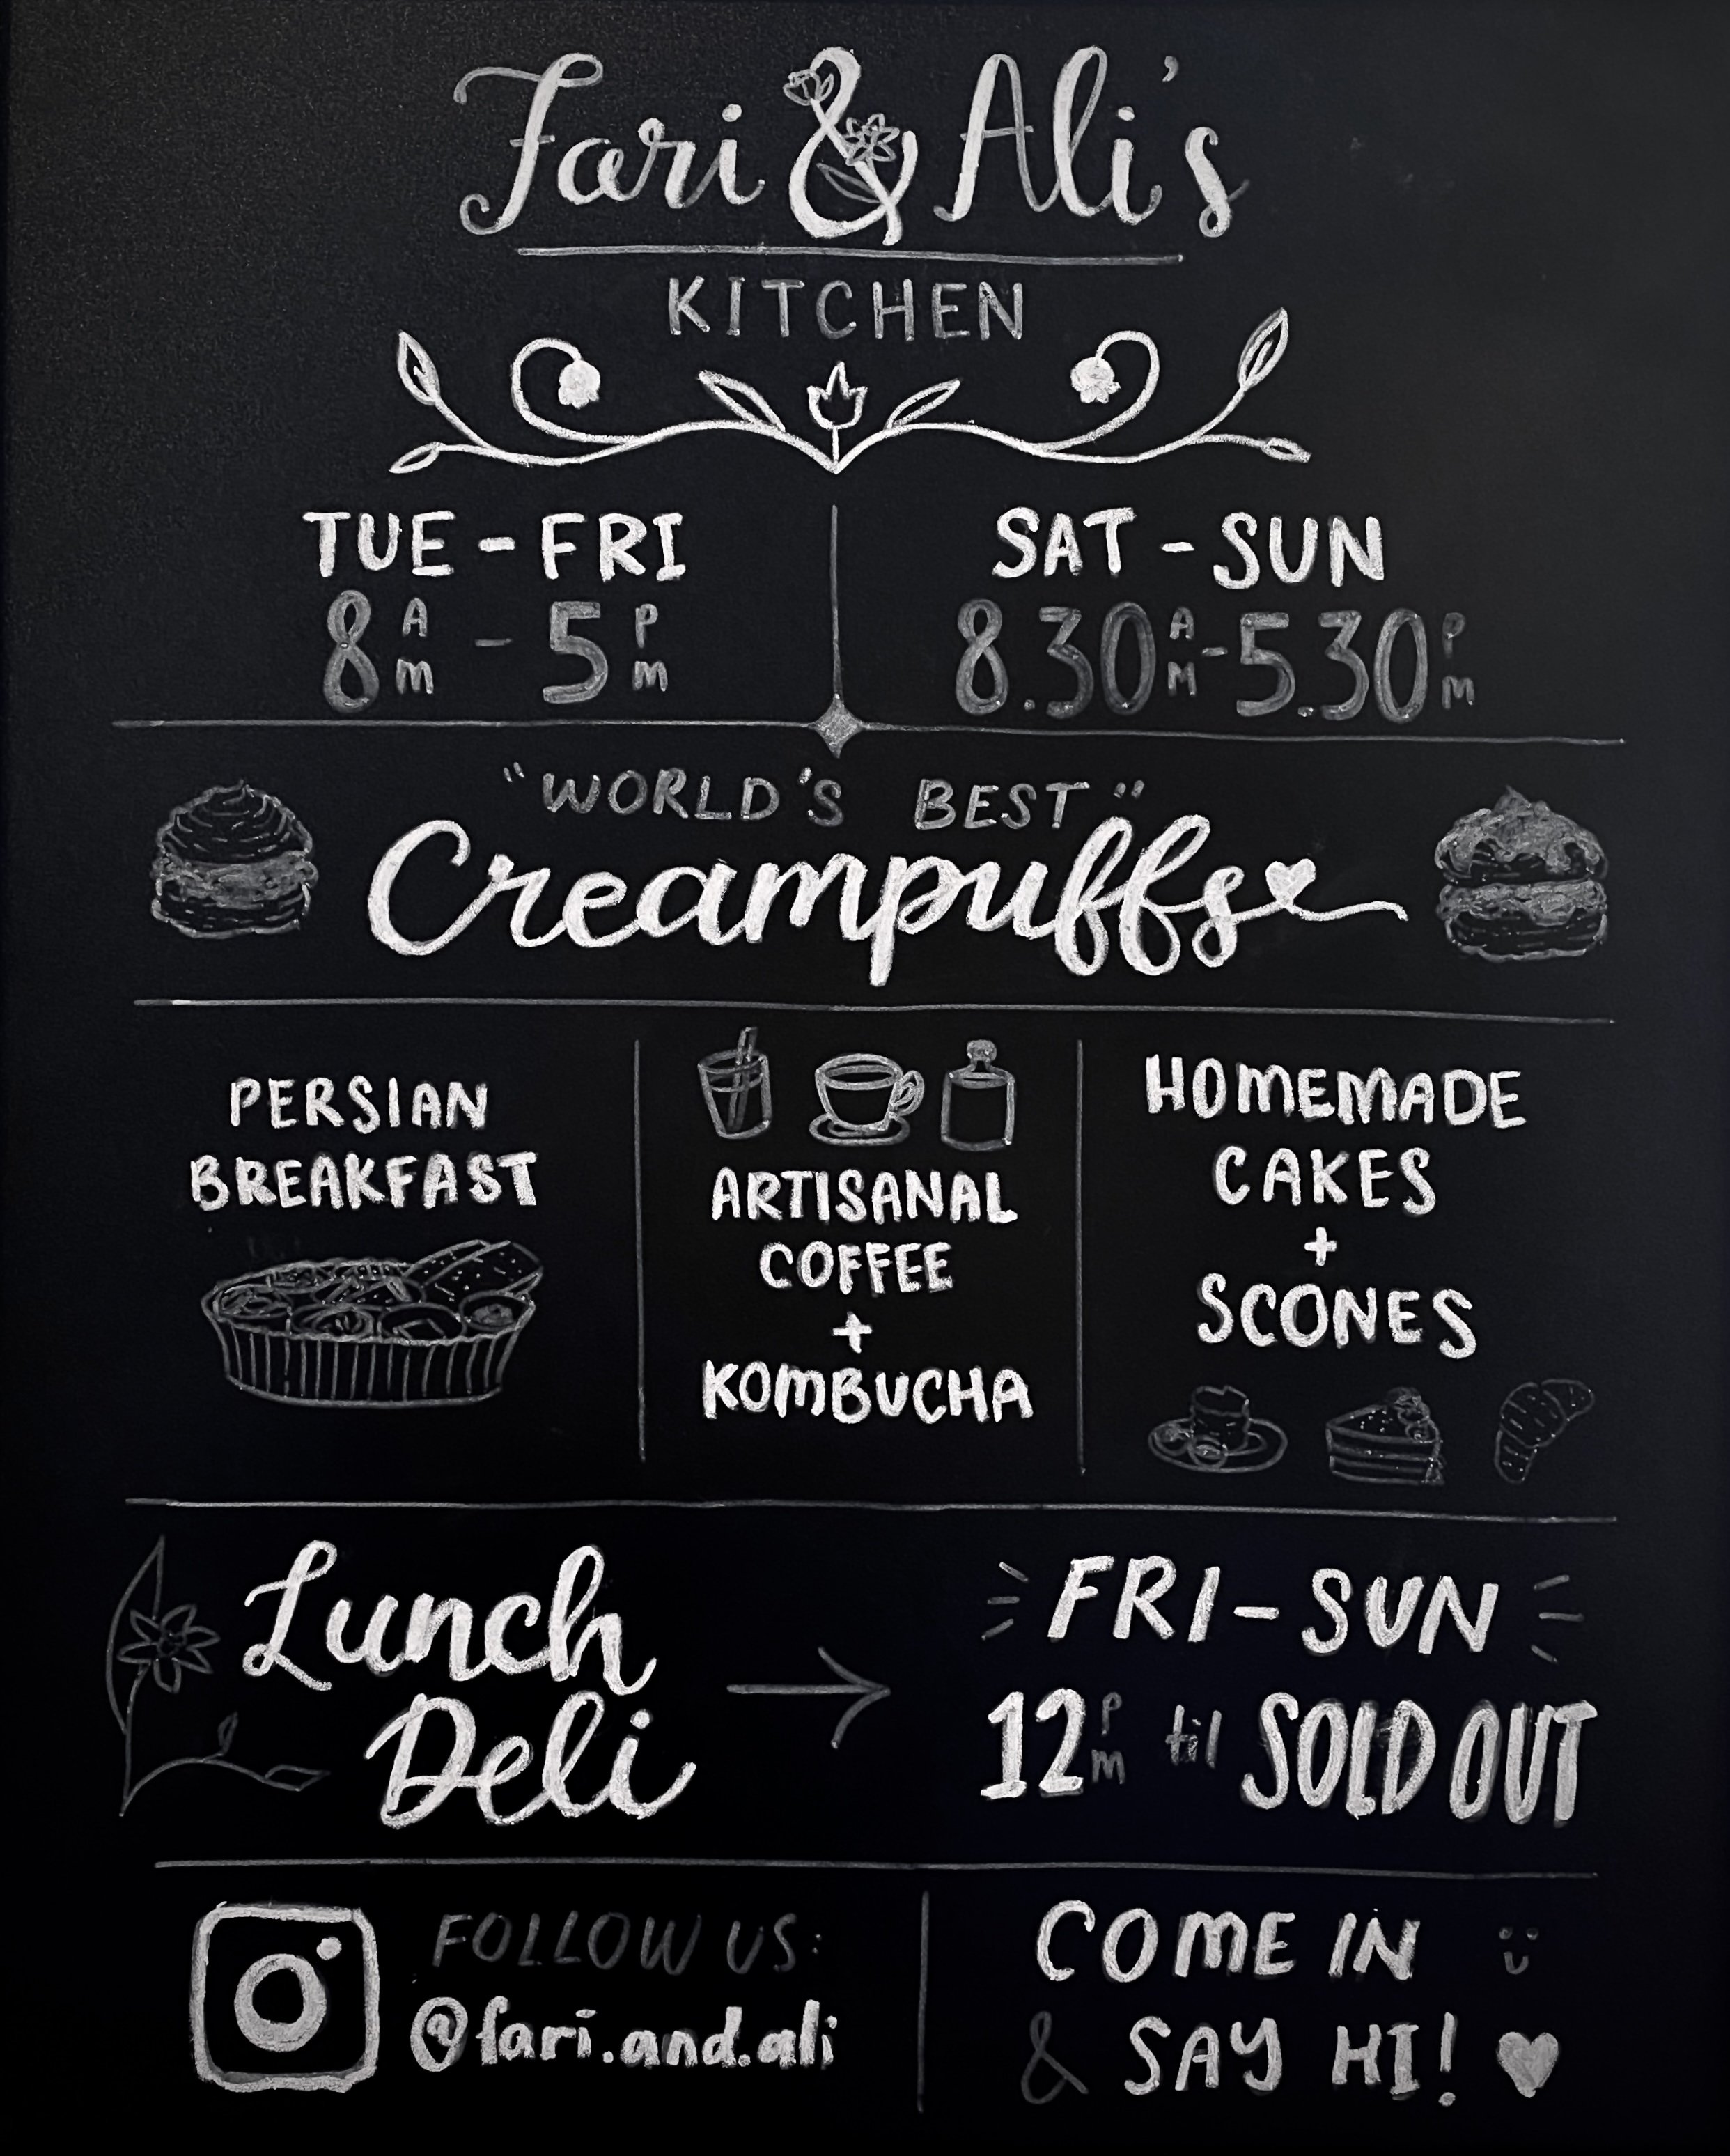 Fari & Ali's
KITCHEN
TUE - FRI
8AM - 5PM
SAT - SUN
8.30AM - 5.30PM
"WORLD'S BEST"
Creampuffs
PERSIAN
BREAKFAST
ARTISANAL
COFFEE
+
KOMBUCHA
HOMEMADE
CAKES
+
SCONES
Lunch
Deli
→
FRI - SUN
12PM til SOLD OUT
FOLLOW US:
@fari.and.ali
COME IN
& SAY HI!